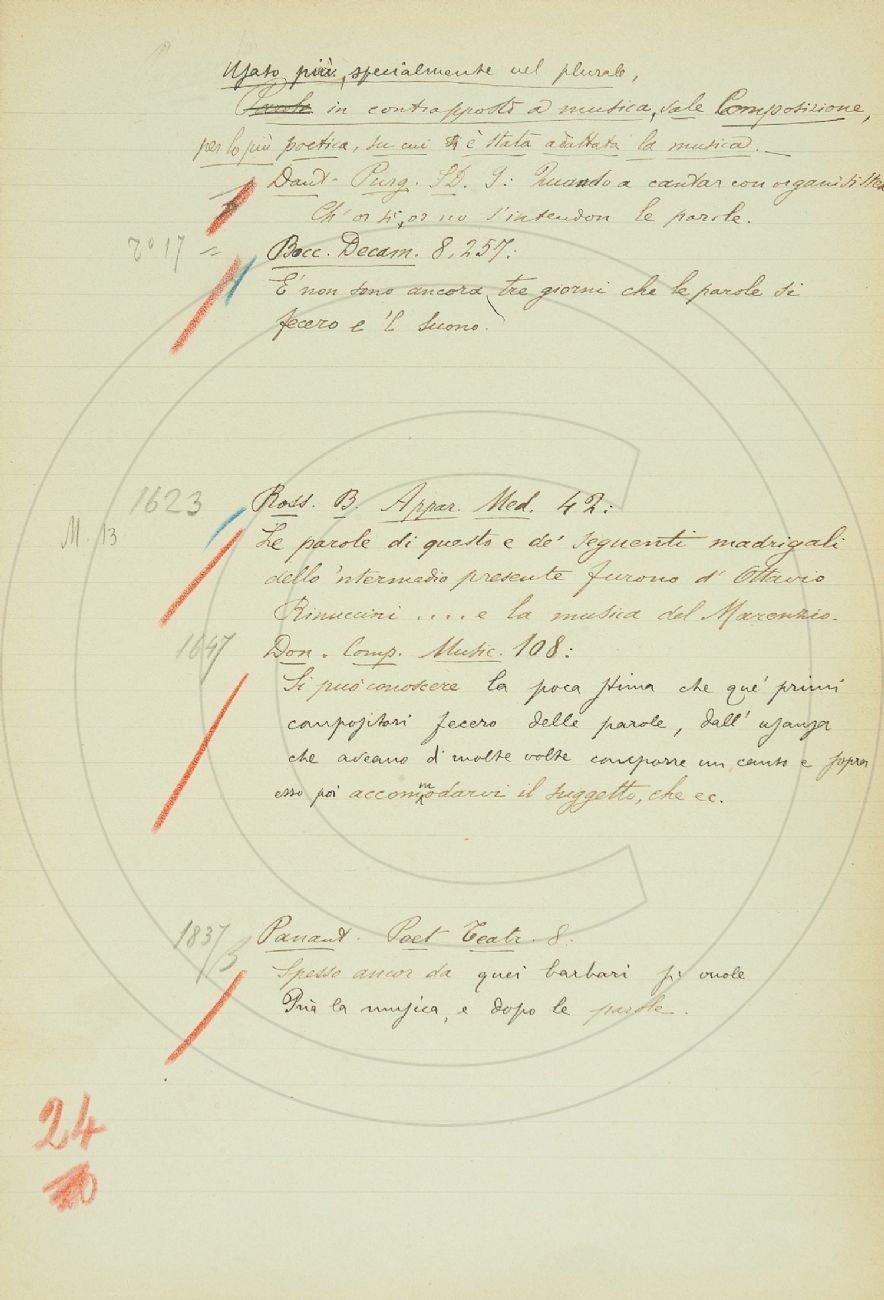 Usato più, specialmente nel plurale,
Parola in contrapposto a musica, vale Composizione,
per lo più poetica, su cui è stata adattata la musica. —
Dant. Purg. 9: Quando a cantar con organi si stea
Ch' or sì, or no s'intendon le parole.
17 = Bocc. Decam. 8, 257:
E' non sono ancora tre giorni che le parole si
fecero e 'l suono.
1623 Ross. B. Appar. Med. 42:
M. 13 Le parole di questo e de' seguenti madrigali
dello 'ntermedio presente furono d' Ottavio
Rinuccini .... e la musica del Marenzio.
1647 Don. Comp. Music. 108:
Si può conoscere la poca stima che que' primi
compositori fecero delle parole, dall' usanza
che aveano di molte volte comporre un canto e sopra
esso poi accommodarvi il suggetto, che ec.
1837 Panant. Poet Teatr. 8.
Spesso ancor da quei barbari si vuole
Pria la musica, e dopo le parole.
24